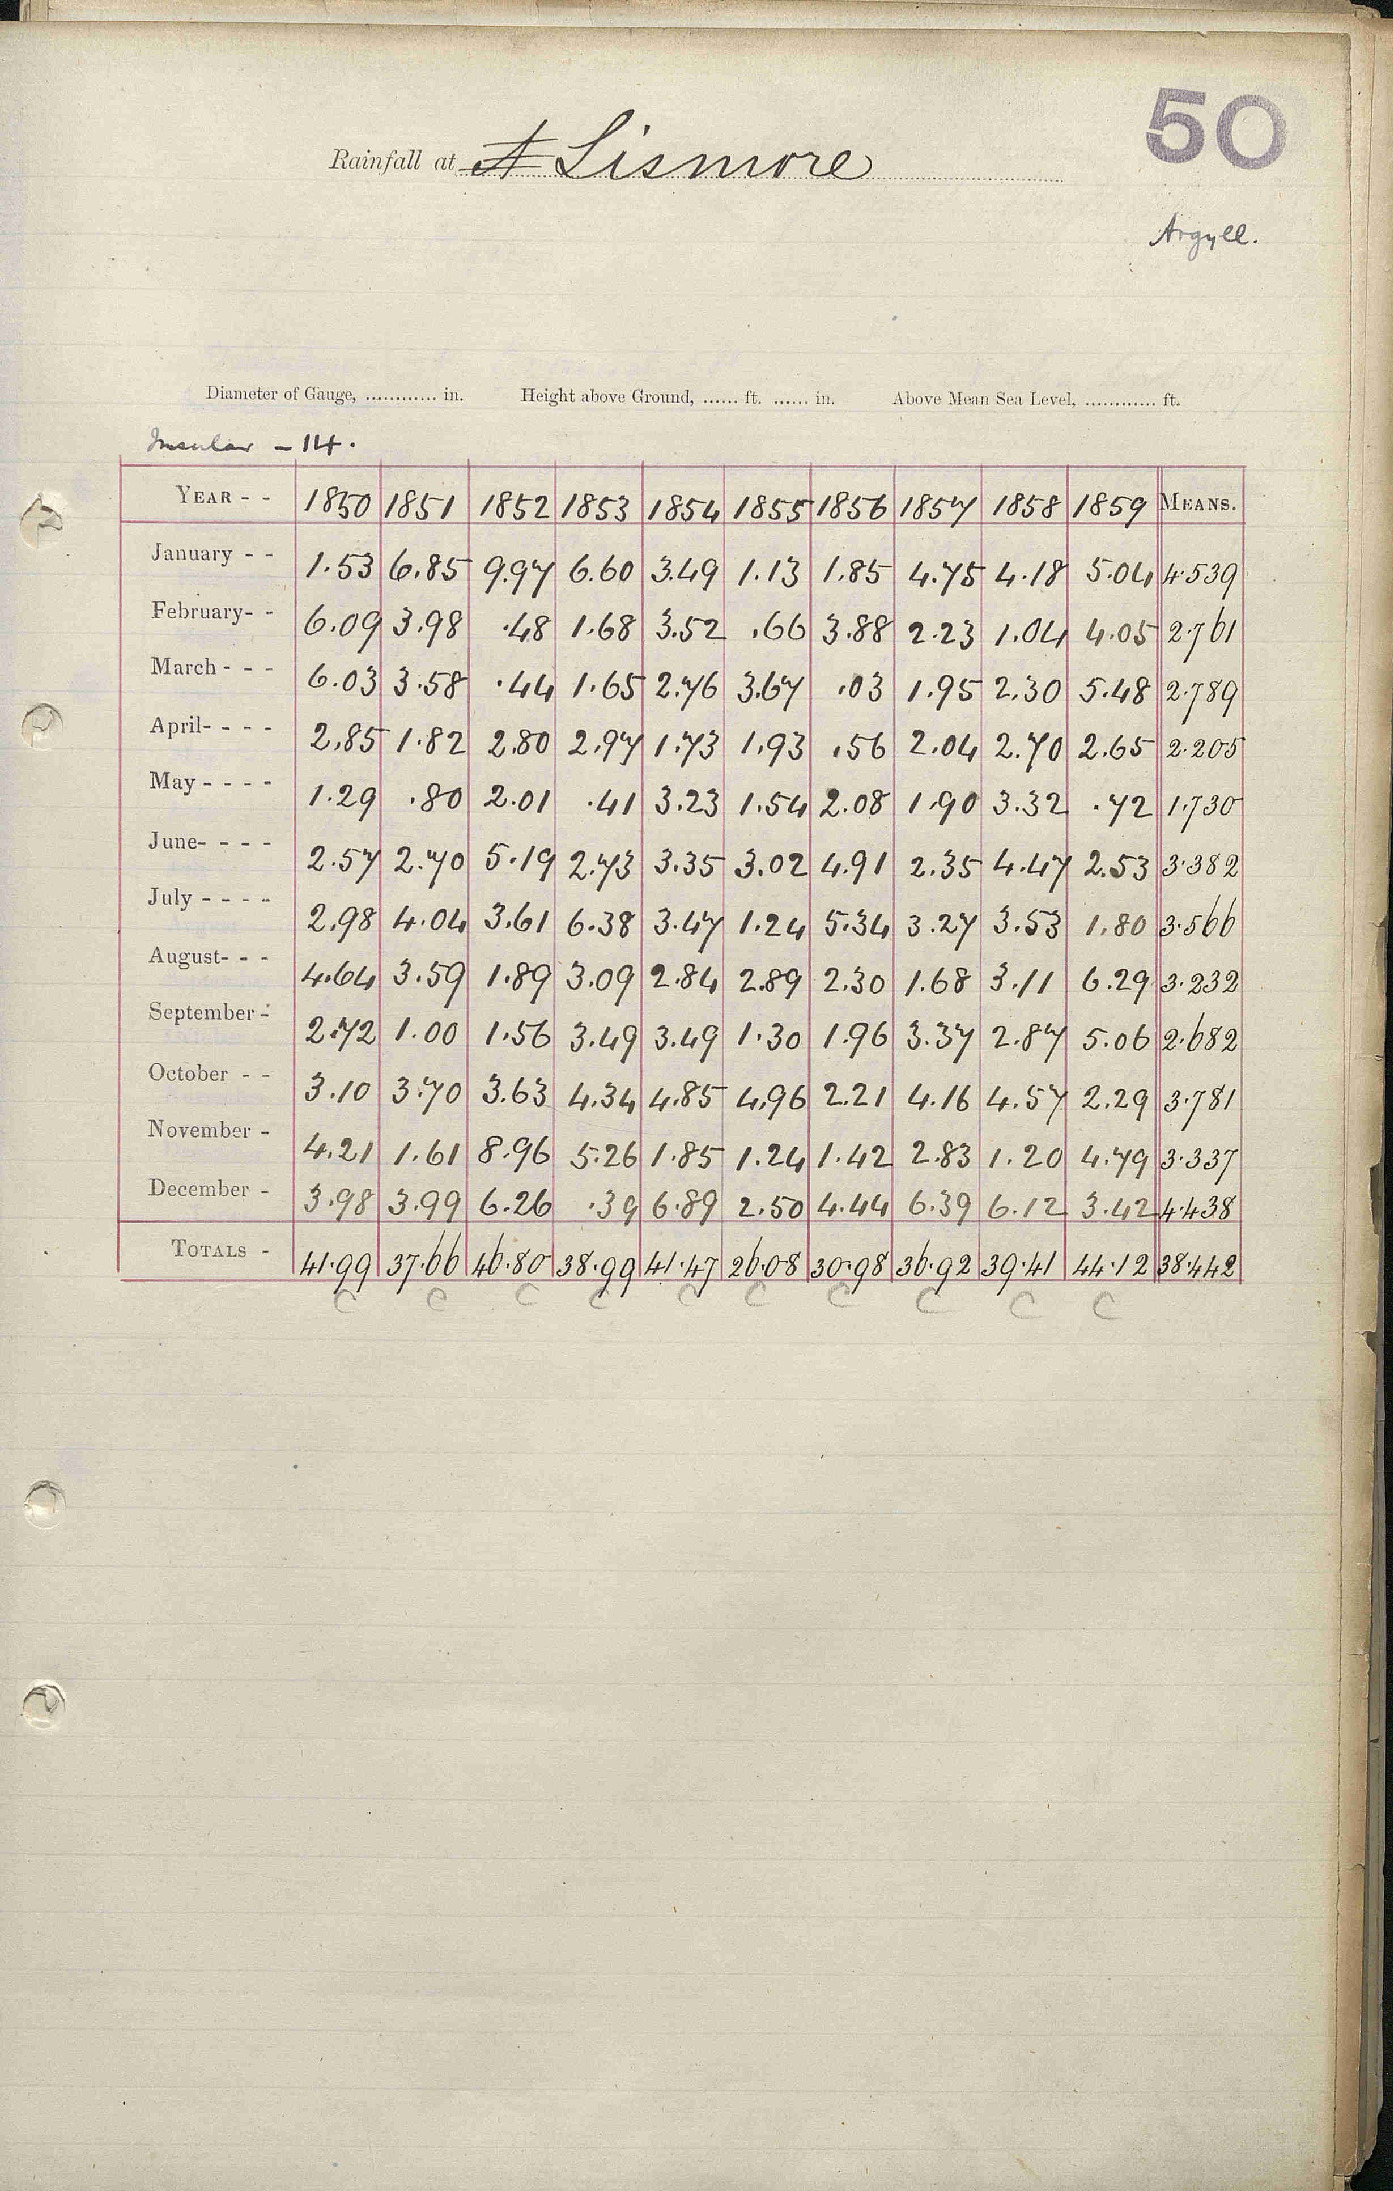 50
Rainfall at A Lismore
Argyll.
Diameter of Gauge, ............ in. Height above Ground, ...... ft. ...... in. Above Mean Sea Level, ............ ft.
Insular - 14.
YEAR - - 1850 1851 1852 1853 1854 1855 1856 1857 1858 1859 MEANS.
January - - 1.53 6.85 9.97 6.60 3.49 1.13 1.85 4.75 4.18 5.04 4.539
February- - 6.09 3.98 .48 1.68 3.52 .66 3.88 2.23 1.04 4.05 2.761
March - - - 6.03 3.58 .44 1.65 2.76 3.67 .03 1.95 2.30 5.48 2.789
April- - - - 2.85 1.82 2.80 2.97 1.73 1.93 .56 2.04 2.70 2.65 2.205
May - - - - 1.29 .80 2.01 .41 3.23 1.54 2.08 1.90 3.32 .72 1.730
June- - - - 2.57 2.70 5.19 2.73 3.35 3.02 4.91 2.35 4.47 2.53 3.382
July - - - - 2.98 4.04 3.61 6.38 3.47 1.24 5.34 3.27 3.53 1.80 3.566
August- - - 4.64 3.59 1.89 3.09 2.84 2.89 2.30 1.68 3.11 6.29 3.232
September - 2.72 1.00 1.56 3.49 3.49 1.30 1.96 3.37 2.87 5.06 2.682
October - - 3.10 3.70 3.63 4.34 4.85 4.96 2.21 4.16 4.57 2.29 3.781
November - 4.21 1.61 8.96 5.26 1.85 1.24 1.42 2.83 1.20 4.79 3.337
December - 3.98 3.99 6.26 .39 6.89 2.50 4.44 6.39 6.12 3.42 4.438
TOTALS - 41.99 37.66 46.80 38.99 41.47 26.08 30.98 36.92 39.41 44.12 38.442
C C C C C C C C C C